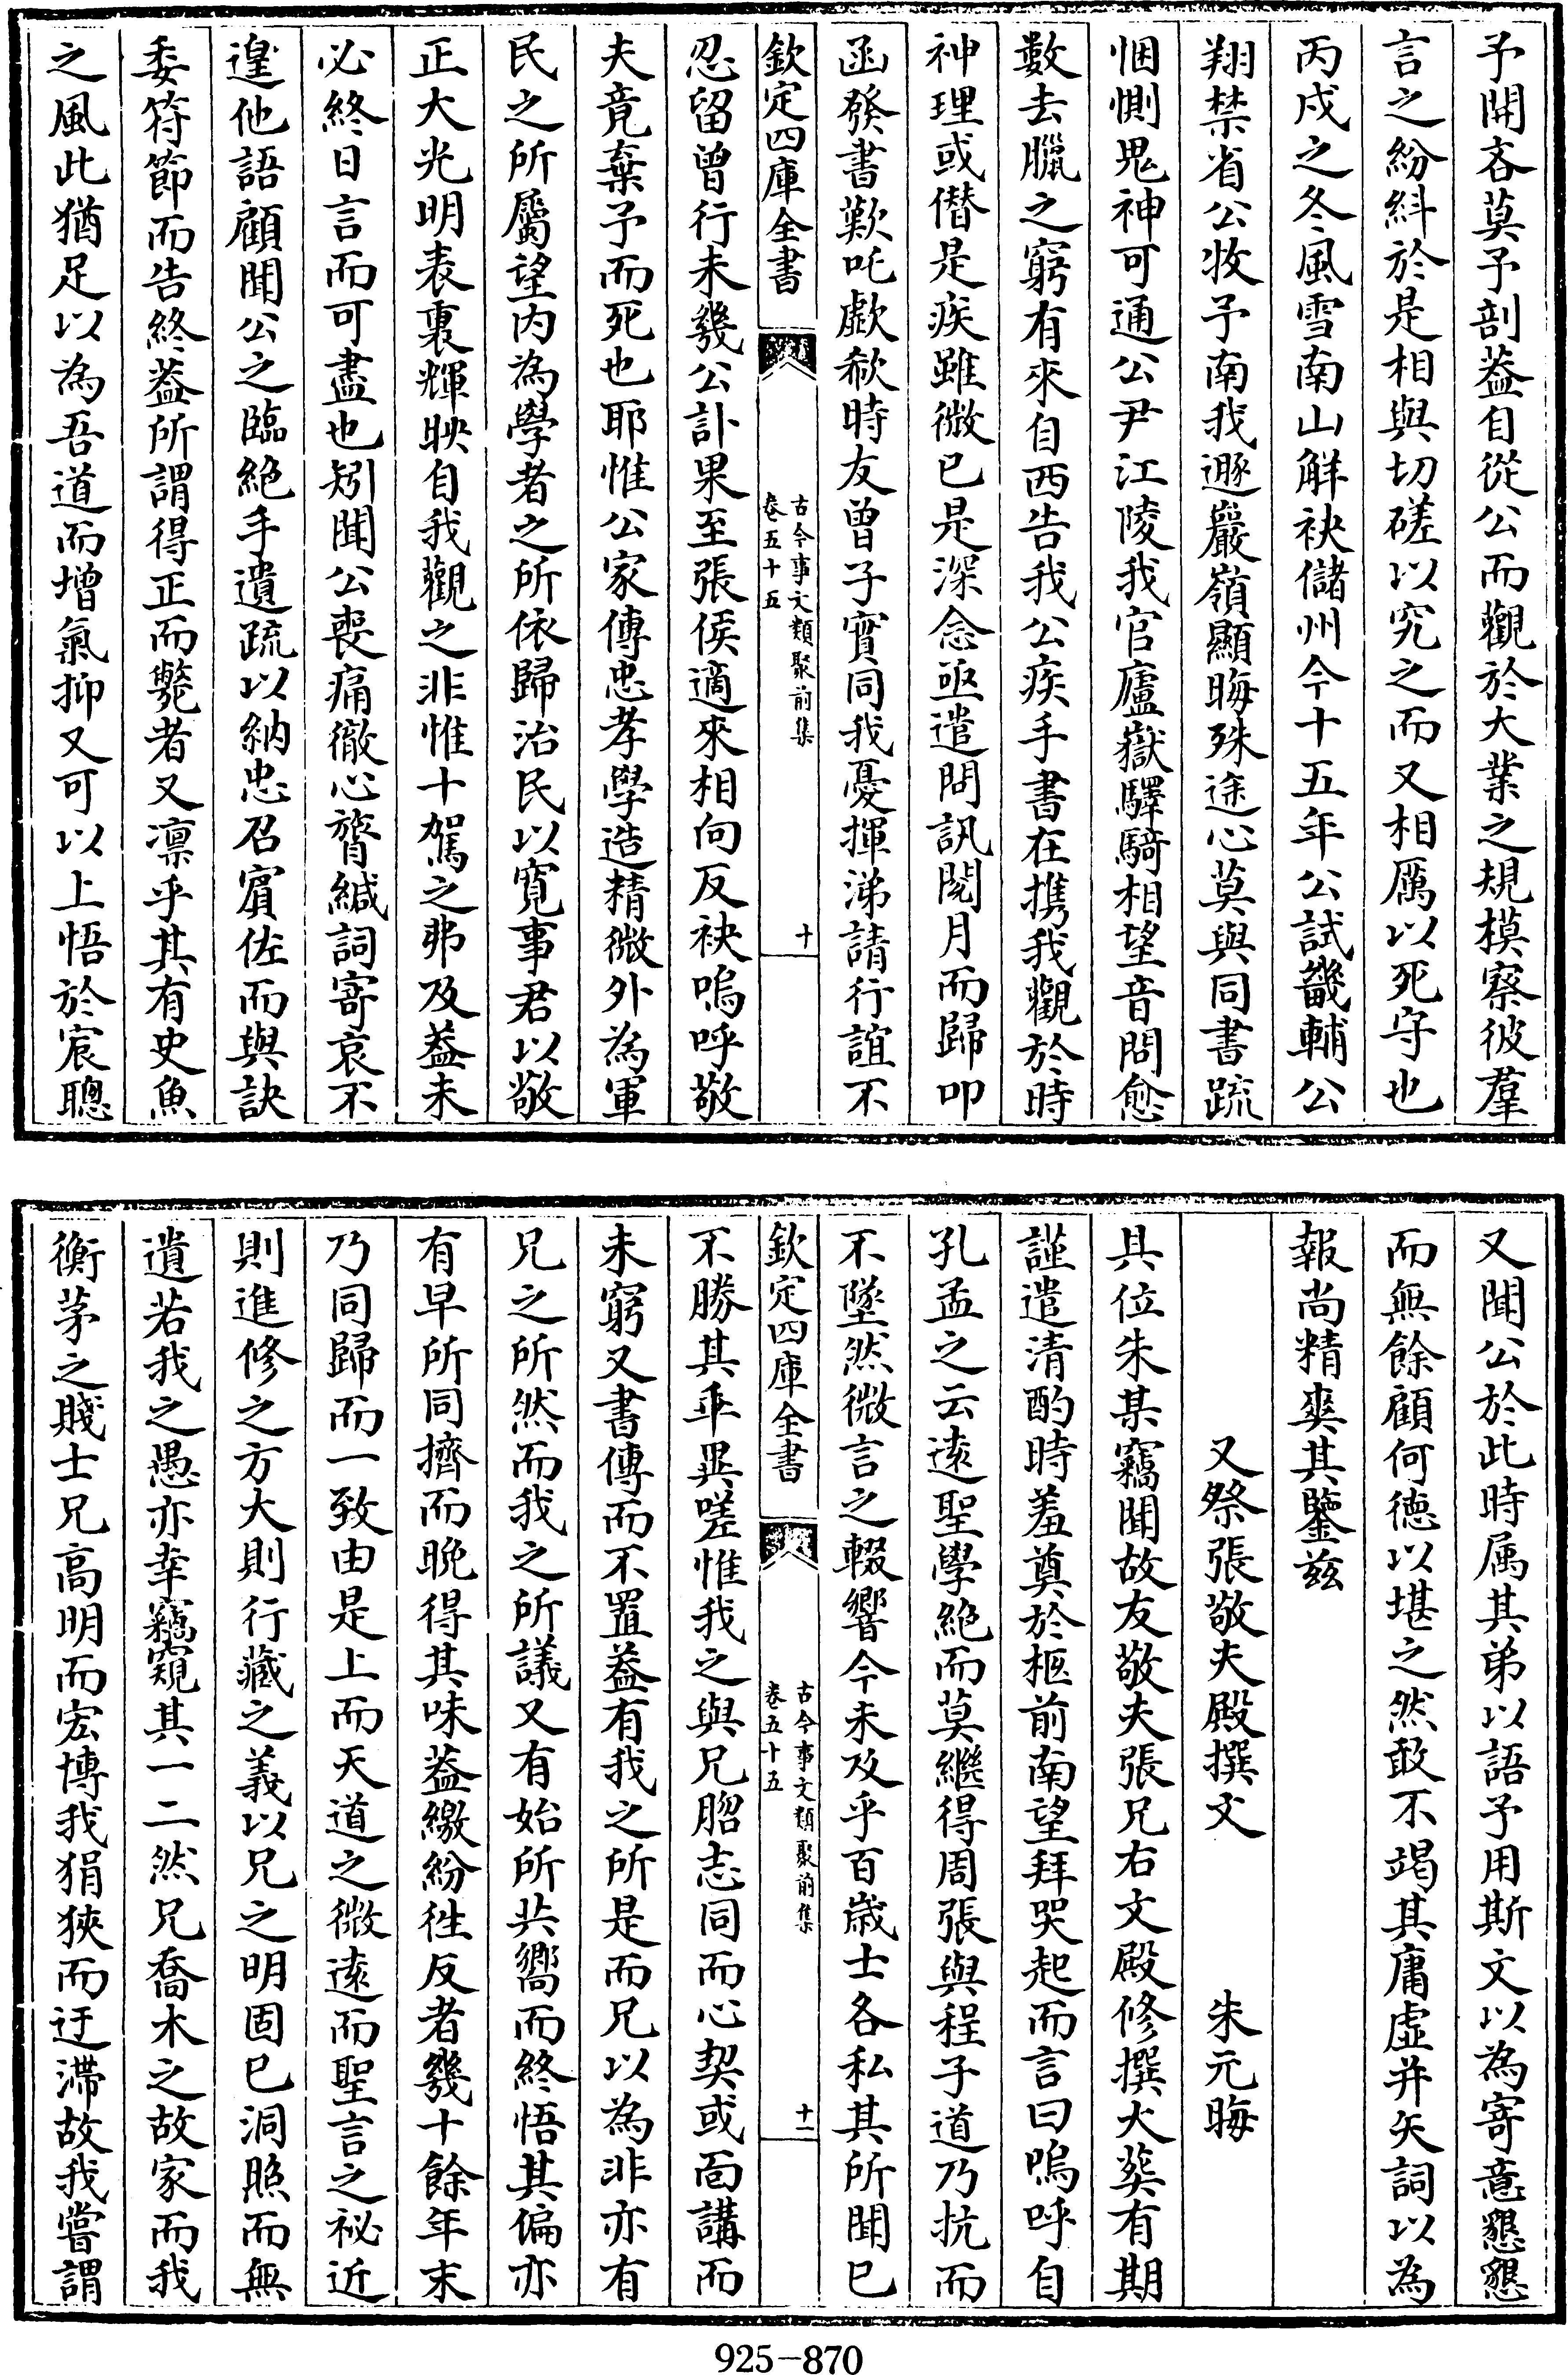 予開吝莫予剖葢自從公而觀於大業之規模察彼羣
言之紛糾於是相與切磋以究之而又相厲以死守也
丙戌之冬風雪南山觧袂儲州今十五年公試畿輔公
翔禁省公牧予南我遯巖嶺顯晦殊途心莫與同書䟽
悃惻鬼神可通公尹江陵我官廬嶽驛騎相望音問愈
數去臘之窮有來自西告我公疾手書在攜我觀於時
神理或僭是疾雖微已是深念亟遣問訊閱月而歸叩
函發書歎吒歔欷時友曾子實同我憂揮涕請行誼不
欽定四庫全書
古今事文類聚前集
卷五十五
十
忍留曾行未幾公訃果至張侯適來相向反袂嗚呼敬
夫竟棄予而死也耶惟公家傳忠孝學造精微外為軍
民之所屬望内為學者之所依歸治民以寛事君以敬
正大光明表裏輝映自我觀之非惟十駕之弗及葢未
必終日言而可盡也矧聞公喪痛徹心膂緘詞寄哀不
遑他語顧聞公之臨絶手遺疏以納忠召賔佐而與訣
委符節而告終葢所謂得正而斃者又凛乎其有史魚
之風此猶足以為吾道而增氣抑又可以上悟於宸聰
又聞公於此時属其弟以語予用斯文以為寄意懇懇
而無餘顧何徳以堪之然敢不竭其庸虚并矢詞以為
報尚精爽其鑒兹
又祭張敬夫殿撰文 朱元晦
具位朱某竊聞故友敬夫張兄右文殿修撰大葬有期
謹遣清酌時羞奠於柩前南望拜哭起而言曰嗚呼自
孔孟之云逺聖學絶而莫繼得周張與程子道乃抗而
不墜然微言之輟響今未及乎百歳士各私其所聞已
欽定四庫全書
古今事文類聚前集
卷五十五
十一
不勝其乖異嗟惟我之與兄㫚志同而心契或面講而
未窮又書傳而不置葢有我之所是而兄以為非亦有
兄之所然而我之所議又有始所共嚮而終悟其偏亦
有早所同擠而晩得其味葢繳紛徃反者幾十餘年末
乃同歸而一致由是上而天道之微逺而聖言之祕近
則進修之方大則行藏之義以兄之明固已洞照而無
遺若我之愚亦幸竊窺其一二然兄喬木之故家而我
衡茅之賤士兄髙明而宏博我狷狹而迂滯故我嘗謂
925-870